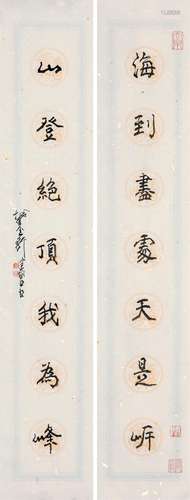 海到盡處天是岸
山登絕頂我為峰